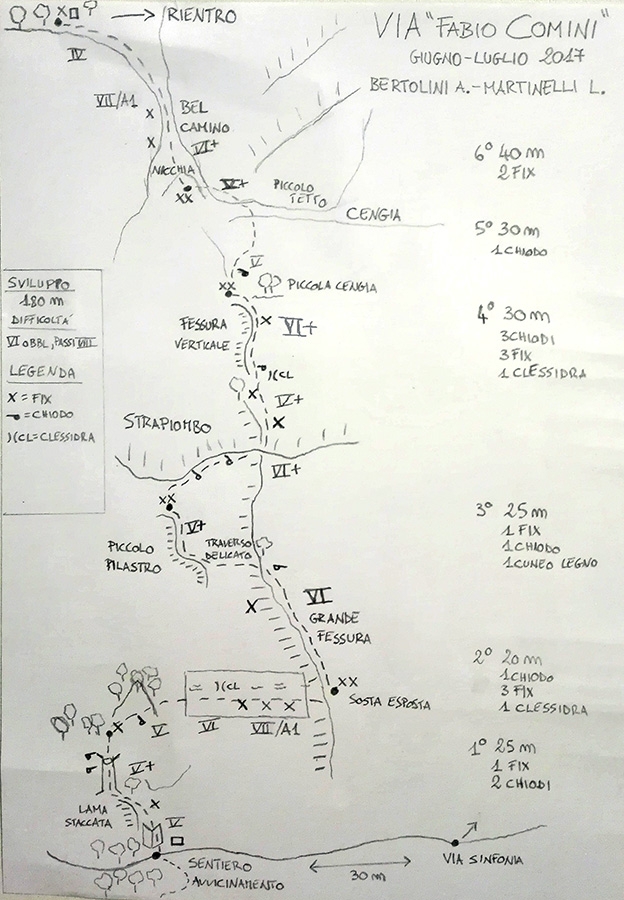 VIA "FABIO COMINI"
GIUGNO-LUGLIO 2017
BERTOLINI A.-MARTINELLI L.
X
RIENTRO
IV
VII/A1
X
X
BEL
CAMINO
VI+
NICCHIA
XX
V+
PICCOLO
TETTO
CENGIA
V
XX
PICCOLA CENGIA
FESSURA
VERTICALE
X
VI+
)(CL
X
V+
X
STRAPIOMBO
VI+
XX
V+
PICCOLO
PILASTRO
TRAVERSO
DELICATO
X
VI
GRANDE
FESSURA
XX
SOSTA ESPOSTA
)(CL
X X X
X
V
VI
VII/A1
V+
LAMA
STACCATA
X
V
SENTIERO
AVVICINAMENTO
30 m
VIA SINFONIA
SVILUPPO
180 m
DIFFICOLTA'
VI OBBL, PASSI VIII
LEGENDA
X = FIX
= CHIODO
)(CL = CLESSIDRA
6° 40 m
2 FIX
5° 30 m
1 CHIODO
4° 30 m
3 CHIODI
3 FIX
1 CLESSIDRA
3° 25 m
1 FIX
1 CHIODO
1 CUNEO LEGNO
2° 20 m
1 CHIODO
3 FIX
1 CLESSIDRA
1° 25 m
1 FIX
2 CHIODI